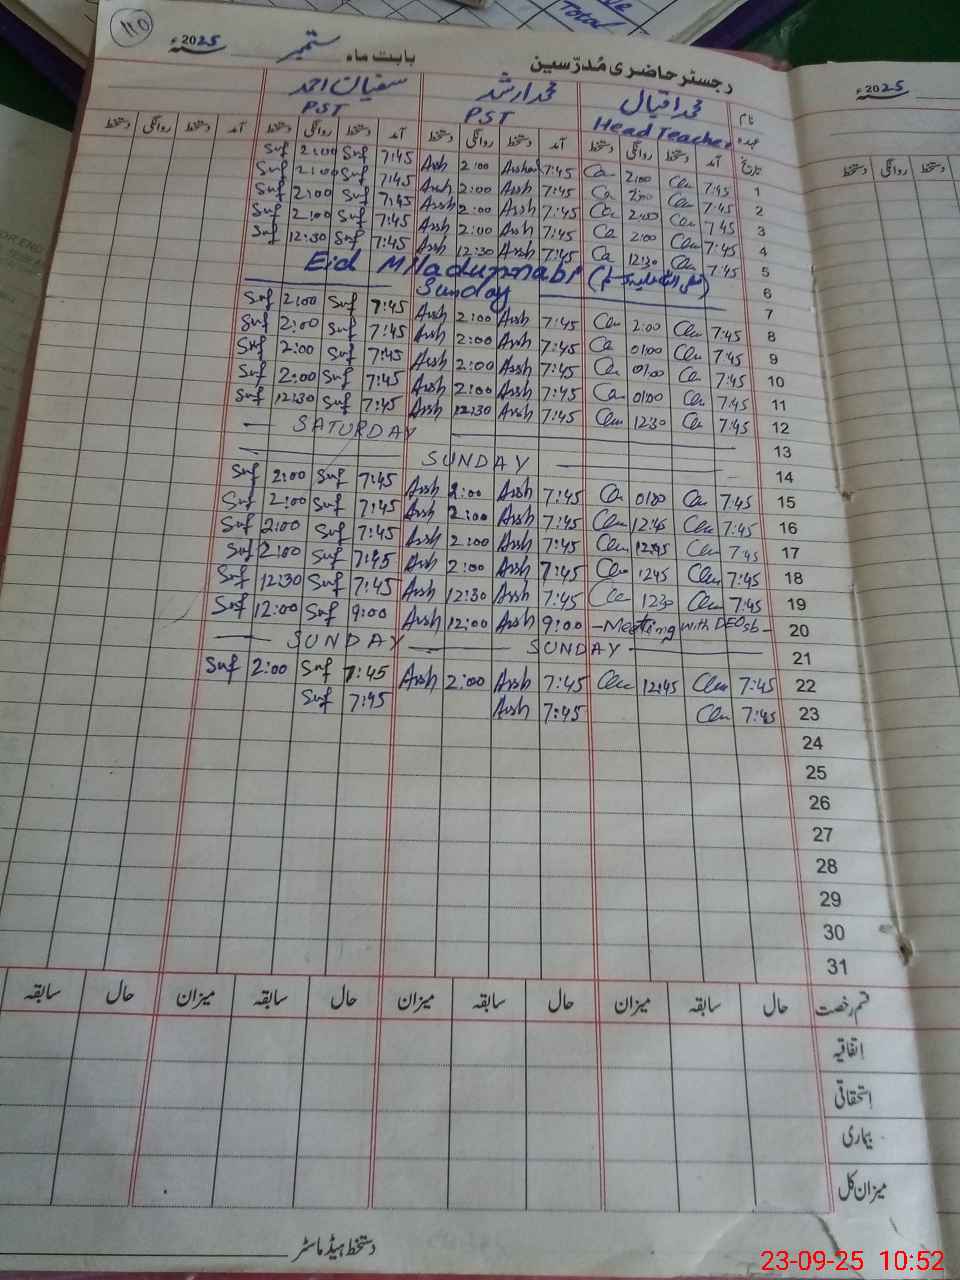 Total
110
رجسٹر حاضری مُدرّسین بابت ماہ ستمبر 2025ء
2025ء
نام محمد اقبال محمد ارشد سفیان احمد
عہدہ Head Teacher PST PST
تاریخ آمد دستخط روانگی دستخط آمد دستخط روانگی دستخط آمد دستخط روانگی دستخط آمد دستخط روانگی دستخط
دستخط روانگی دستخط
1 7:45 2:00 7:45 Arshad 2:00 Arsh 7:45 Suf 2:00 Suf
2 7:45 2:00 7:45 Arsh 2:00 Arsh 7:45 Suf 2:00 Suf
3 7:45 2:00 7:45 Arsh 2:00 Arsh 7:45 Suf 2:00 Suf
4 7:45 2:00 7:45 Arsh 2:00 Arsh 7:45 Suf 2:00 Suf
5 7:45 12:30 7:45 Arsh 12:30 Arsh 7:45 Suf 12:30 Suf
6 Eid Miladunnabi
7 Sunday
8 7:45 2:00 7:45 Arsh 2:00 Arsh 7:45 Suf 2:00 Suf
9 7:45 01:00 7:45 Arsh 2:00 Arsh 7:45 Suf 2:00 Suf
10 7:45 01:00 7:45 Arsh 2:00 Arsh 7:45 Suf 2:00 Suf
11 7:45 01:00 7:45 Arsh 2:00 Arsh 7:45 Suf 2:00 Suf
12 7:45 12:30 7:45 Arsh 12:30 Arsh 7:45 Suf 12:30 Suf
13 SATURDAY
14 SUNDAY
15 7:45 01:00 7:45 Arsh 2:00 Arsh 7:45 Suf 2:00 Suf
16 7:45 12:45 7:45 Arsh 2:00 Arsh 7:45 Suf 2:00 Suf
17 7:45 12:45 7:45 Arsh 2:00 Arsh 7:45 Suf 2:00 Suf
18 7:45 12:45 7:45 Arsh 2:00 Arsh 7:45 Suf 2:00 Suf
19 7:45 12:30 7:45 Arsh 12:30 Arsh 7:45 Suf 12:30 Suf
20 Meeting with DEO sb 9:00 Arsh 12:00 Arsh 9:00 Suf 12:00 Suf
21 SUNDAY SUNDAY
22 7:45 12:45 7:45 Arsh 2:00 Arsh 7:45 Suf 2:00 Suf
23 7:45 7:45 Arsh 7:45 Suf
24
25
26
27
28
29
30
31
قسم رخصت حال سابقہ میزان حال سابقہ میزان حال سابقہ میزان حال سابقہ
اتفاقیہ
استحقاقی
بیماری
میزان کل
دستخط ہیڈ ماسٹر
23-09-25 10:52